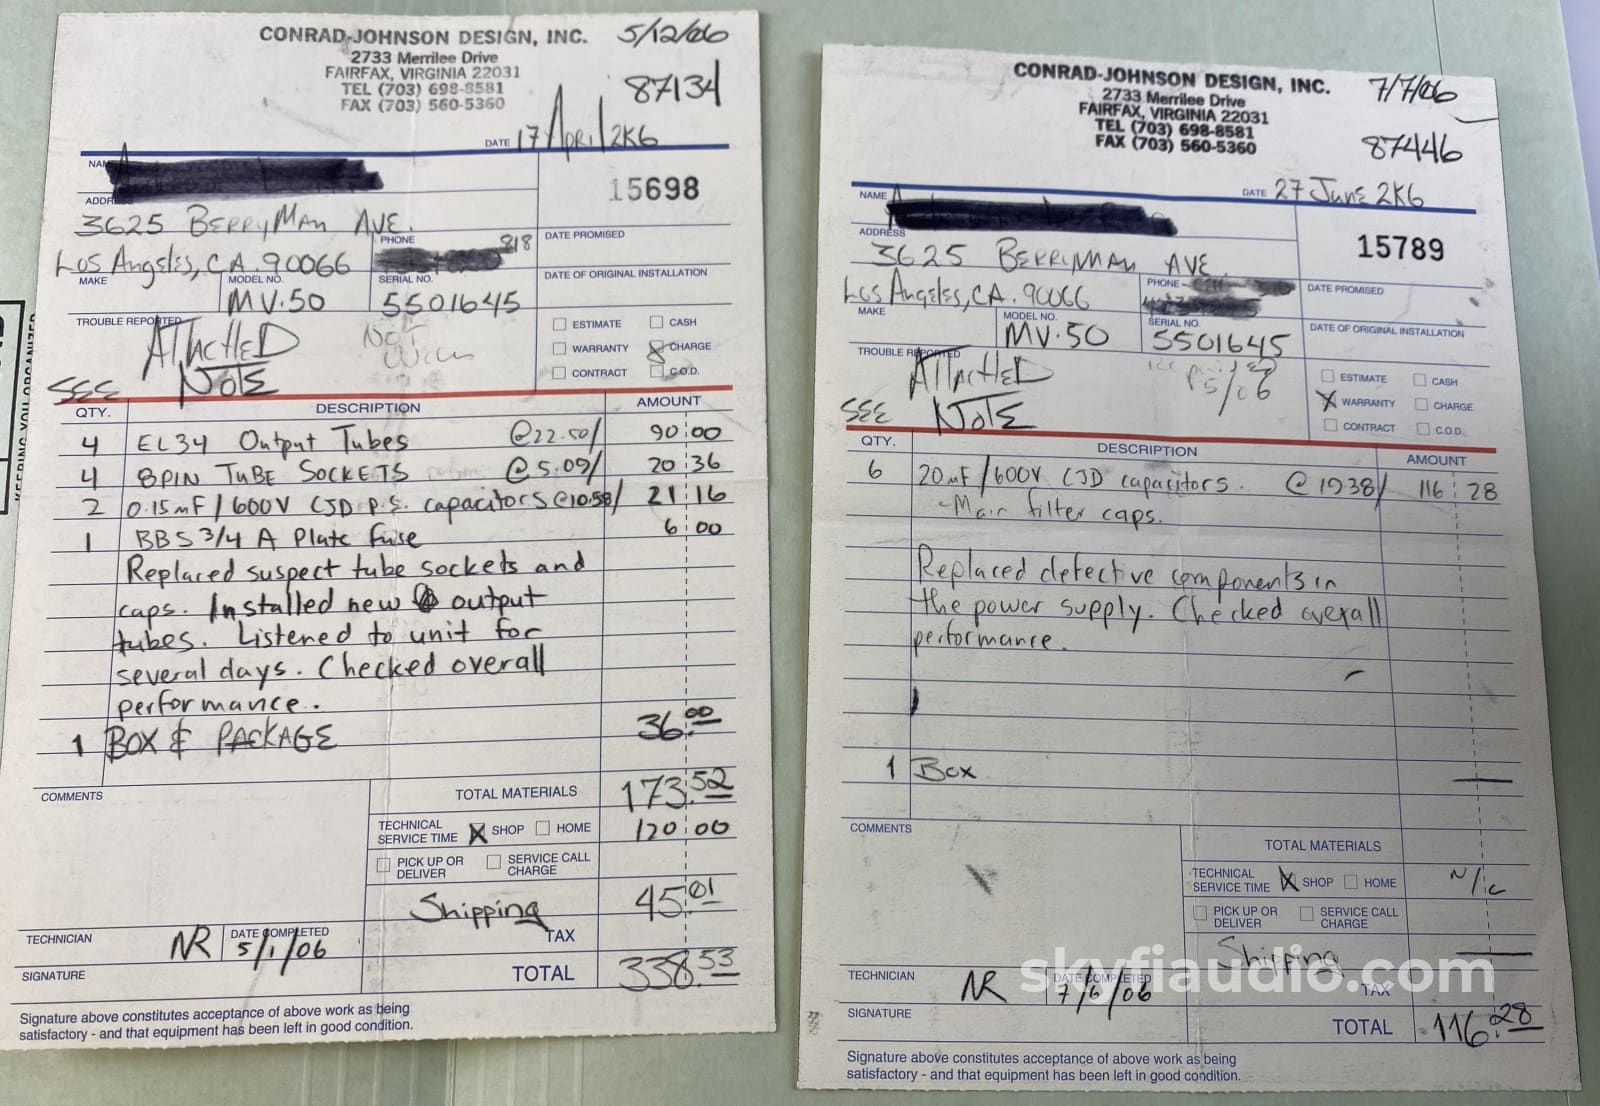 CONRAD-JOHNSON DESIGN, INC.
2733 Merrilee Drive
FAIRFAX, VIRGINIA 22031
TEL (703) 698-8581
FAX (703) 560-5360
5/12/06
87134
DATE 17 April 2K6
NAME
15698
ADDRESS
3625 BERRYMAN AVE.
Los Angeles, CA. 90066
PHONE 818
DATE PROMISED
MAKE
MODEL NO. MV.50
SERIAL NO. 5501645
DATE OF ORIGINAL INSTALLATION
TROUBLE REPORTED
SEE ATTACHED NOTE
ESTIMATE CASH
WARRANTY CHARGE
CONTRACT C.O.D.
QTY. DESCRIPTION AMOUNT
4 EL34 Output Tubes @22.50/ 90 00
4 8PIN TUBE SOCKETS @5.09/ 20 36
2 0.15mF/600V CJD P.S. capacitors @10.58/ 21 16
1 BBS 3/4 A Plate fuse 6 00
Replaced suspect tube sockets and
caps. Installed new output
tubes. Listened to unit for
several days. Checked overall
performance.
1 BOX & PACKAGE 36.00
COMMENTS
TOTAL MATERIALS 173.52
TECHNICAL SERVICE TIME X SHOP HOME 120 00
PICK UP OR DELIVER SERVICE CALL CHARGE
Shipping 45.01
TAX
TECHNICIAN NR DATE COMPLETED 5/1/06
SIGNATURE
TOTAL 338.53
Signature above constitutes acceptance of above work as being
satisfactory - and that equipment has been left in good condition.
CONRAD-JOHNSON DESIGN, INC.
2733 Merrilee Drive
FAIRFAX, VIRGINIA 22031
TEL (703) 698-8581
FAX (703) 560-5360
7/7/06
87446
DATE 27 June 2K6
NAME
15789
ADDRESS
3625 BERRYMAN AVE.
Los Angeles, CA. 90066
PHONE
DATE PROMISED
MAKE
MODEL NO. MV.50
SERIAL NO. 5501645
DATE OF ORIGINAL INSTALLATION
TROUBLE REPORTED
SEE ATTACHED NOTE
5/06
ESTIMATE CASH
X WARRANTY CHARGE
CONTRACT C.O.D.
QTY. DESCRIPTION AMOUNT
6 20mF/600V CJD capacitors. @1938/ 116 28
- Main filter caps.
Replaced defective components in
the power supply. Checked overall
performance.
1 Box —
COMMENTS
TOTAL MATERIALS
TECHNICAL SERVICE TIME X SHOP HOME N/C
PICK UP OR DELIVER SERVICE CALL CHARGE
Shipping —
TAX
skyfiaudio.com
TECHNICIAN NR DATE COMPLETED 7/6/06
SIGNATURE
TOTAL 116.28
Signature above constitutes acceptance of above work as being
satisfactory - and that equipment has been left in good condition.
KEEPING YOU ORGANIZED